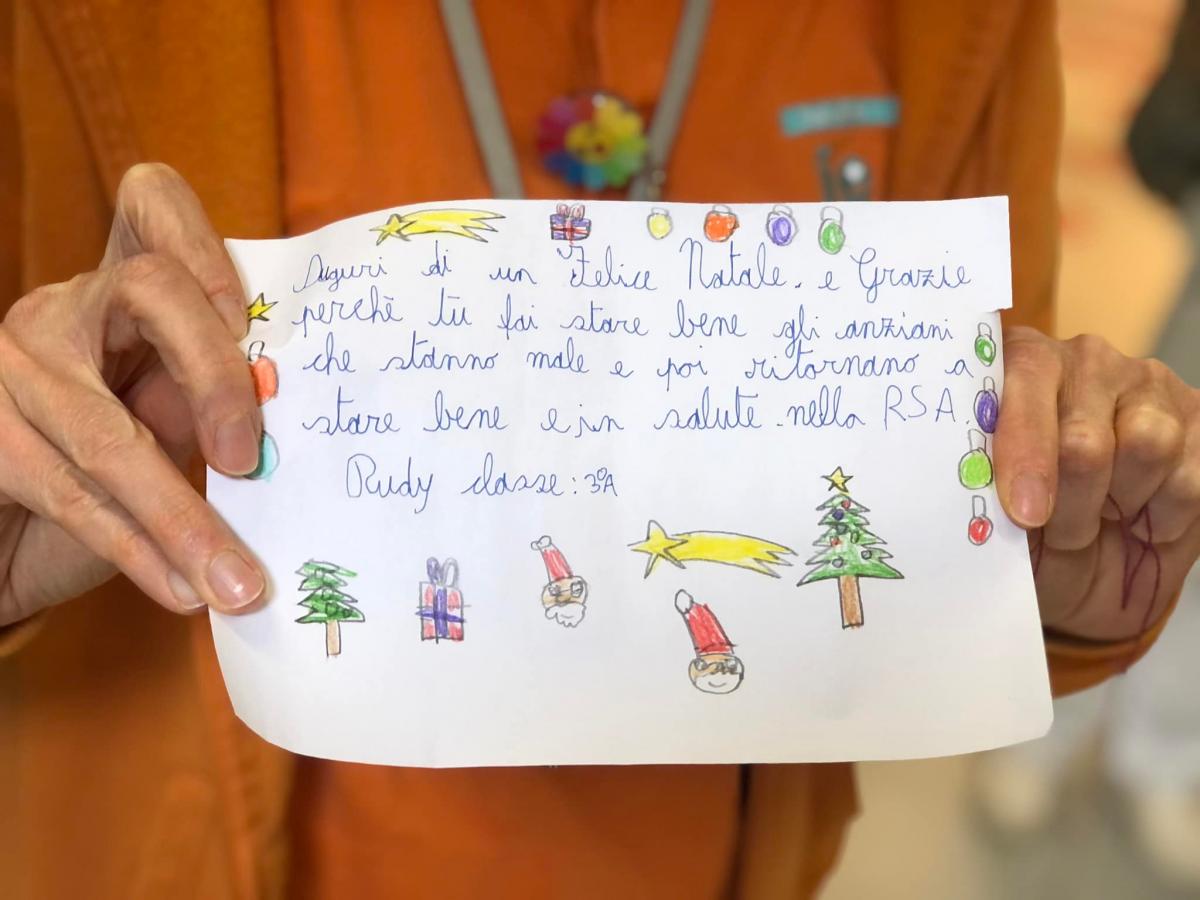 Auguri di un Felice Natale. e Grazie
perchè tù fai stare bene gli anziani
che stanno male e poi ritornano a
stare bene e in salute nella RSA.
Rudy classe: 3°A